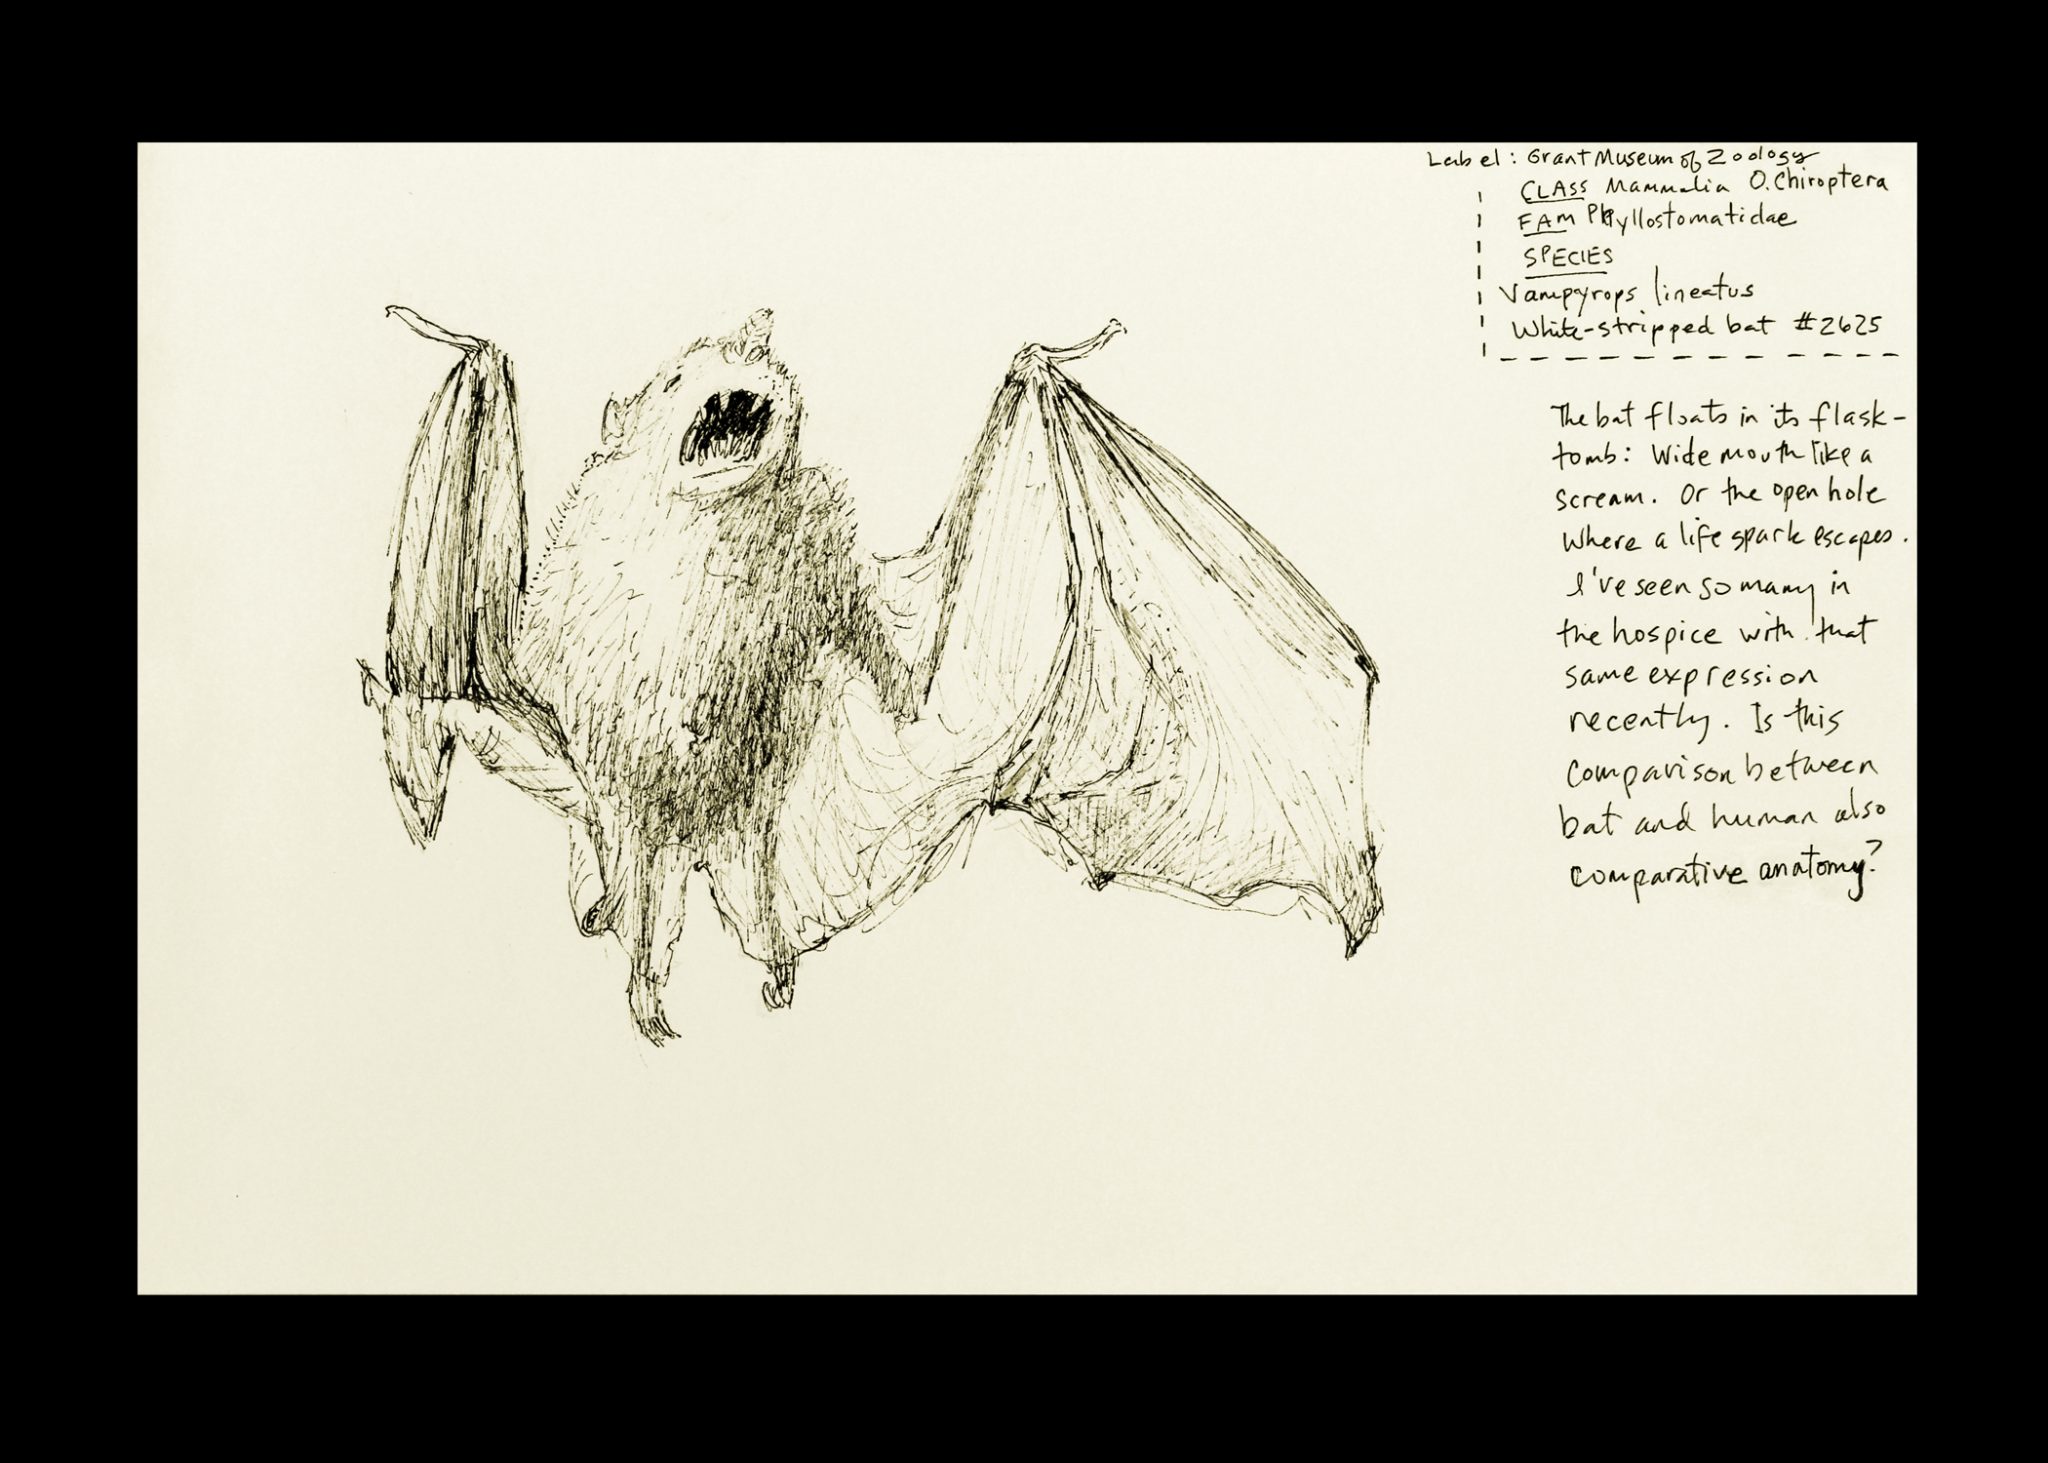 Label: Grant Museum of Zoology
CLASS Mammalia O. Chiroptera
FAM Phyllostomatidae
SPECIES
Vampyrops lineatus
White-stripped bat #2625
The bat floats in its flask-
tomb: Wide mouth like a
scream. Or the open hole
where a life spark escapes.
I've seen so many in
the hospice with that
same expression
recently. Is this
comparison between
bat and human also
comparative anatomy?